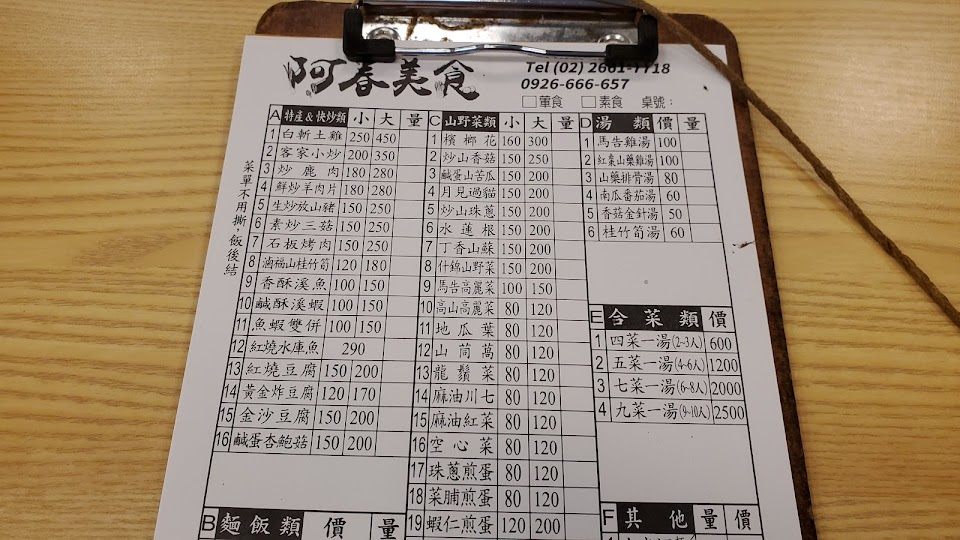 阿春美食
Tel (02) 2661-7718
0926-666-657
□葷食 □素食 桌號：
菜單不用撕，飯後結
A 特產&快炒類 小 大 量
1 白斬土雞 250 450
2 客家小炒 200 350
3 炒鹿肉 180 280
4 鮮炒羊肉片 180 280
5 生炒放山豬 150 250
6 素炒三菇 150 250
7 石板烤肉 150 250
8 滷福山桂竹筍 120 180
9 香酥溪魚 100 150
10 鹹酥溪蝦 100 150
11 魚蝦雙併 100 150
12 紅燒水庫魚 290
13 紅燒豆腐 150 200
14 黃金炸豆腐 120 170
15 金沙豆腐 150 200
16 鹹蛋杏鮑菇 150 200
B 麵飯類 價 量
C 山野菜類 小 大 量
1 檳榔花 160 300
2 炒山香菇 150 250
3 鹹蛋山苦瓜 150 200
4 月見過貓 150 200
5 炒山珠蔥 150 200
6 水蓮根 150 200
7 丁香山蘇 150 200
8 什錦山野菜 150 200
9 馬告高麗菜 100 150
10 高山高麗菜 80 120
11 地瓜葉 80 120
12 山茼萵 80 120
13 龍鬚菜 80 120
14 麻油川七 80 120
15 麻油紅菜 80 120
16 空心菜 80 120
17 珠蔥煎蛋 80 120
18 菜脯煎蛋 80 120
19 蝦仁煎蛋 120 200
D 湯類 價 量
1 馬告雞湯 100
2 紅棗山藥雞湯 100
3 山藥排骨湯 80
4 南瓜番茄湯 60
5 香菇金針湯 50
6 桂竹筍湯 60
E 合菜類 價
1 四菜一湯(2-3人) 600
2 五菜一湯(4-6人) 1200
3 七菜一湯(6-8人) 2000
4 九菜一湯(9-10人) 2500
F 其他 量 價